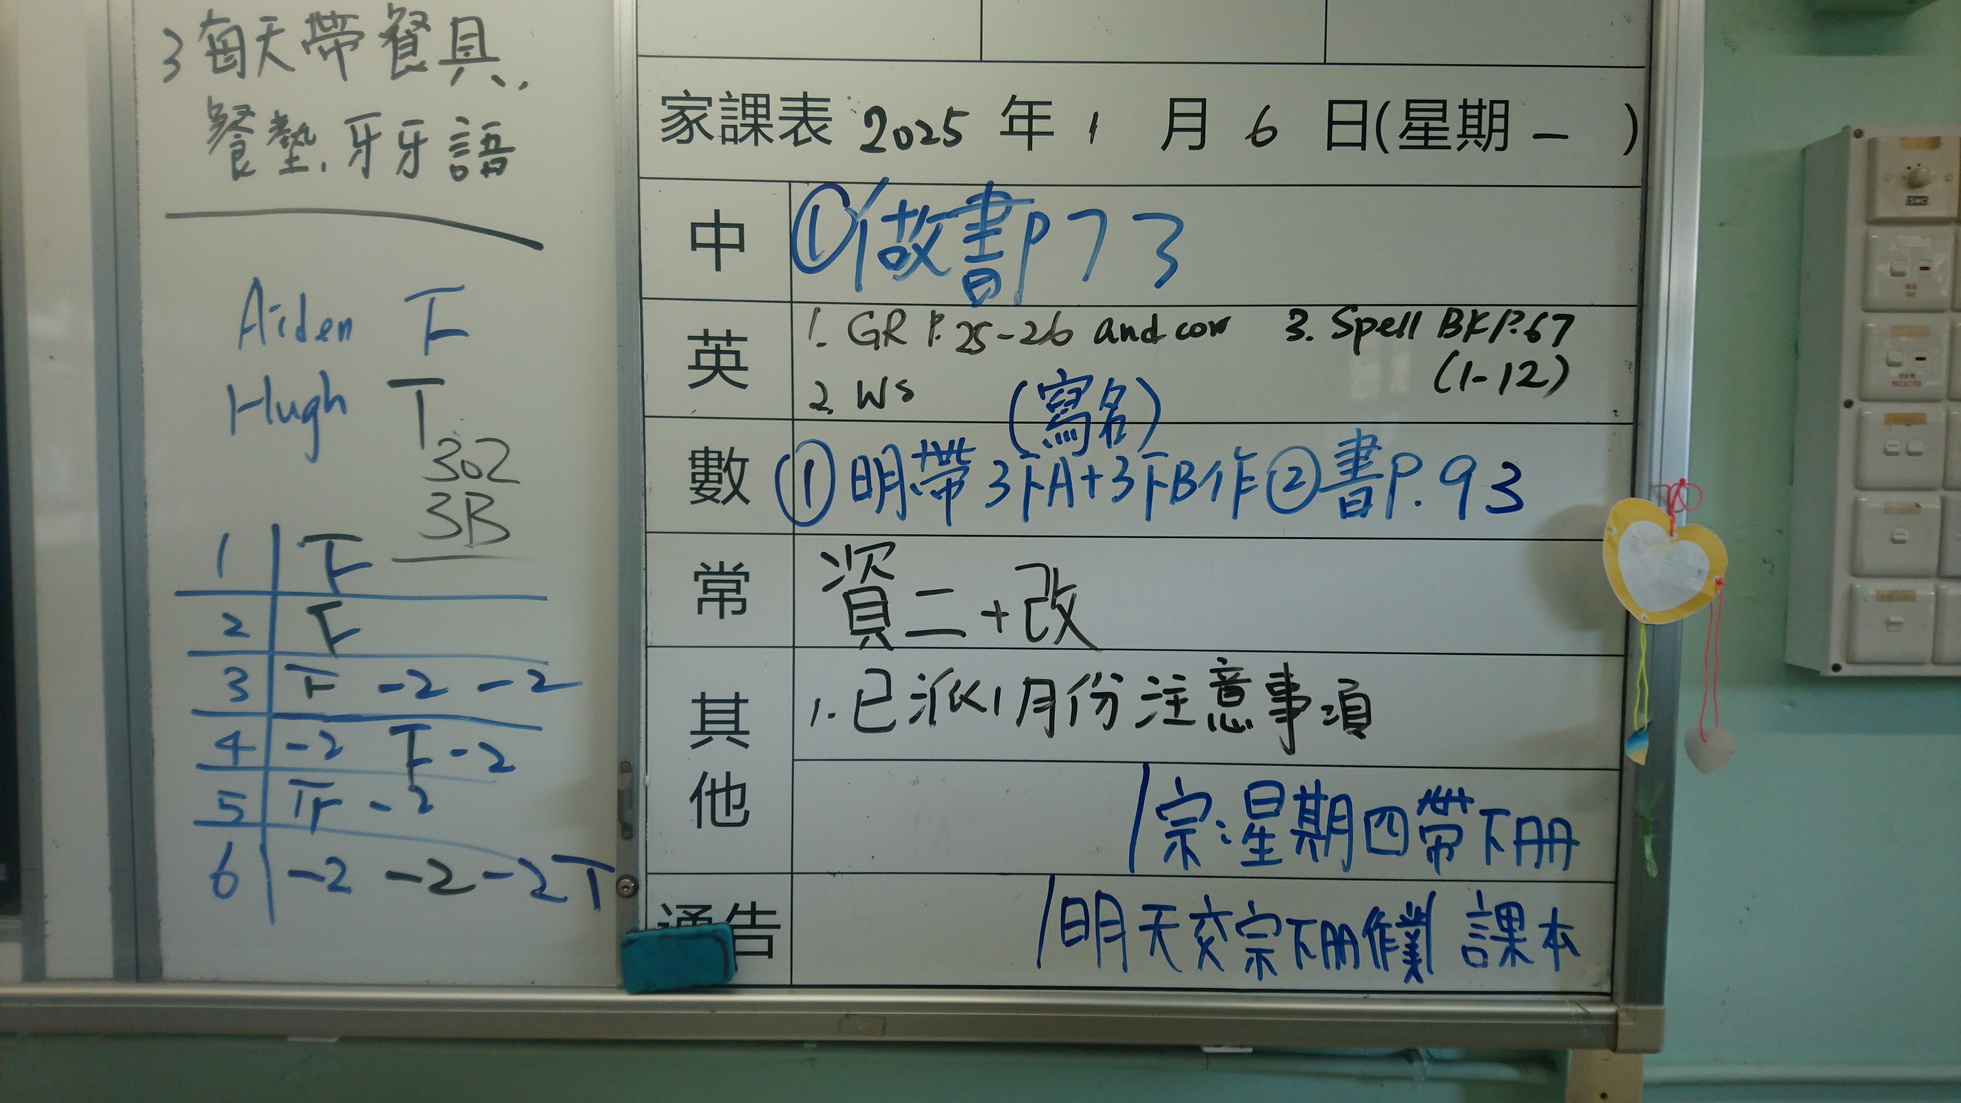 3 每天帶餐具,
餐墊,牙牙語
Aiden
Hugh
302
3B
1
2
3 -2 -2
4 -2 -2
5 -2
6 -2 -2 -2
家課表 2025 年 1 月 6 日(星期一)
中 ①做書P73
英 1. GR P.25-26 and corr 3. Spell BK P.67
(1-12)
2. WS
(寫名)
數 ①明帶3下A+3下B作②書P.93
常 資二+改
其他 1. 已派1月份注意事項
/宗:星期四帶下冊
通告 /明天交宗下冊作業 課本